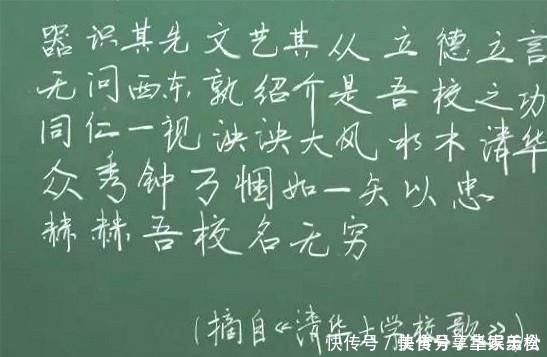 器识其先文艺其从立德立言
无问西东孰绍介是吾校之功
同仁一视泱泱大风水木清华
众秀钟万悃如一矢以忠
赫赫吾校名无穷
(摘自《清华大学校歌》)
快传号